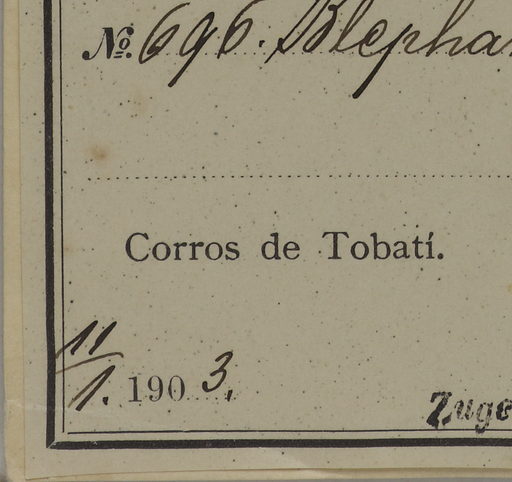 No. 696. Blepha
Corros de Tobatí.
11/1. 1903.
Zuge